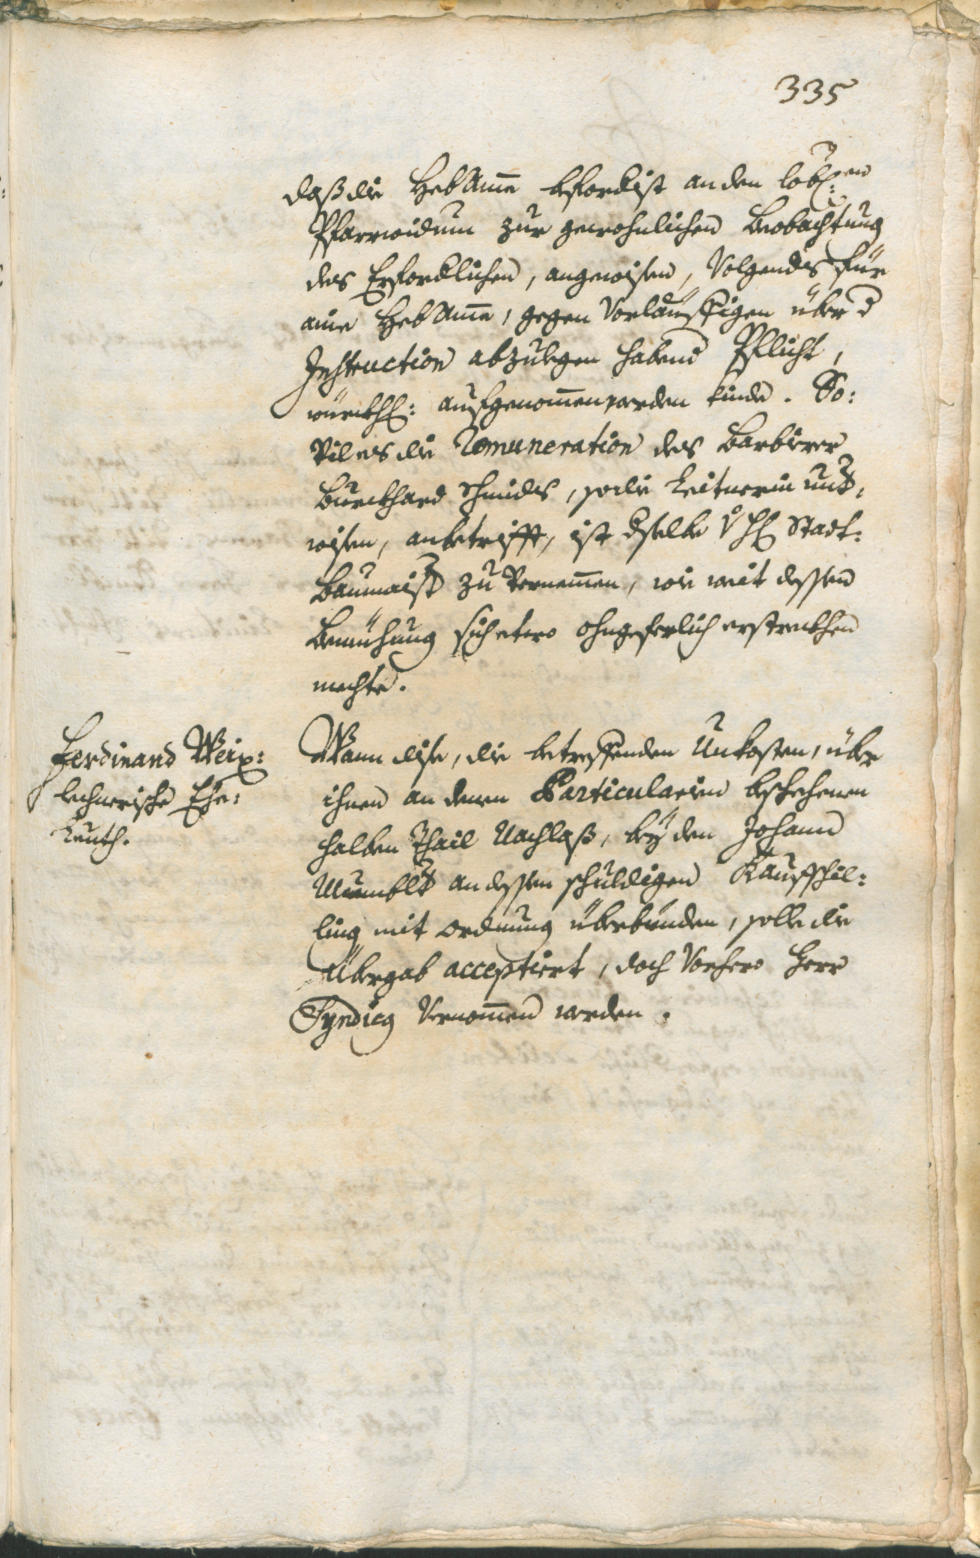 335
daß die HebAmme beforderist an den löbl:en
Pfarrwidum zur gewohnlichen Beobachtung
des Erforderlichen, angewisen, Volgends für
eine HebAmme, gegen Vorläuffigen über d
Instruction abzulegen habend Pflicht,
würckhl: aufgenommen werden künde. So:
Vil es die Remuneration des Barbierer
Burckhard Schmids, so die Leitnerin unter,
wisen, anbetrifft, ist dselbe Hl Stadt:
Baumaister zu Vernemmen, wie weit dessen
Bemühung sich etwo ohngeferlich erstreckhen
mechte.
Ferdinand Weix:
lechnerische Ehe:
Leuth.
Wann dise, die betreffenden Unkosten, über
ihnen an denen Particularien beschehenen
halben Thail Nachlaß, bey den Johann
an dessen schuldigen Kaufschil:
ling mit ordnung überbünden, solle die
Übergab acceptiert, doch Vorhero Herr
Syndicus Vernommen werden.